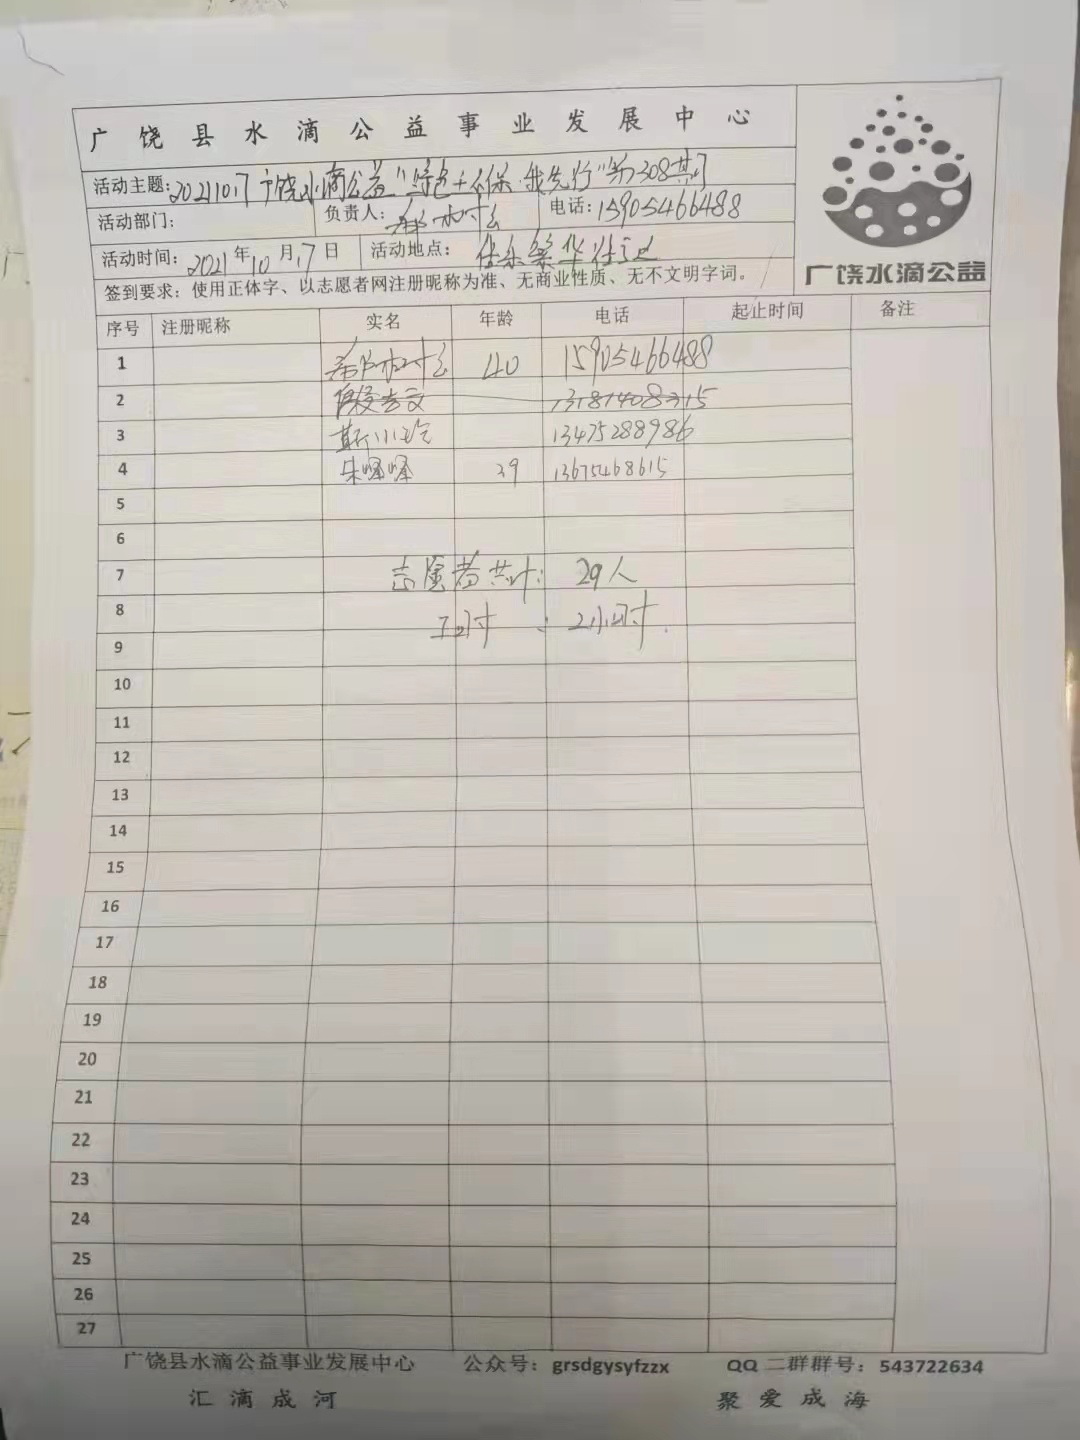 广饶县水滴公益事业发展中心
活动主题:20211017广饶水滴公益"绿色环保 我先行"第308期
活动部门: 负责人: 电话:15905466488
活动时间:2021年10月17日 活动地点:
签到要求:使用正体字、以志愿者网注册昵称为准、无商业性质、无不文明字词。
广饶水滴公益
序号 注册昵称 实名 年龄 电话 起止时间 备注
1 40 15905466488
2 13181408315
3 13475288986
4 朱峰峰 39 13675468615
5
6
7 志愿者共计: 29人
8 工时 : 2小时.
9
10
11
12
13
14
15
16
17
18
19
20
21
22
23
24
25
26
27
广饶县水滴公益事业发展中心 公众号:grsdgysyfzzx QQ二群群号:543722634
汇滴成河 聚爱成海